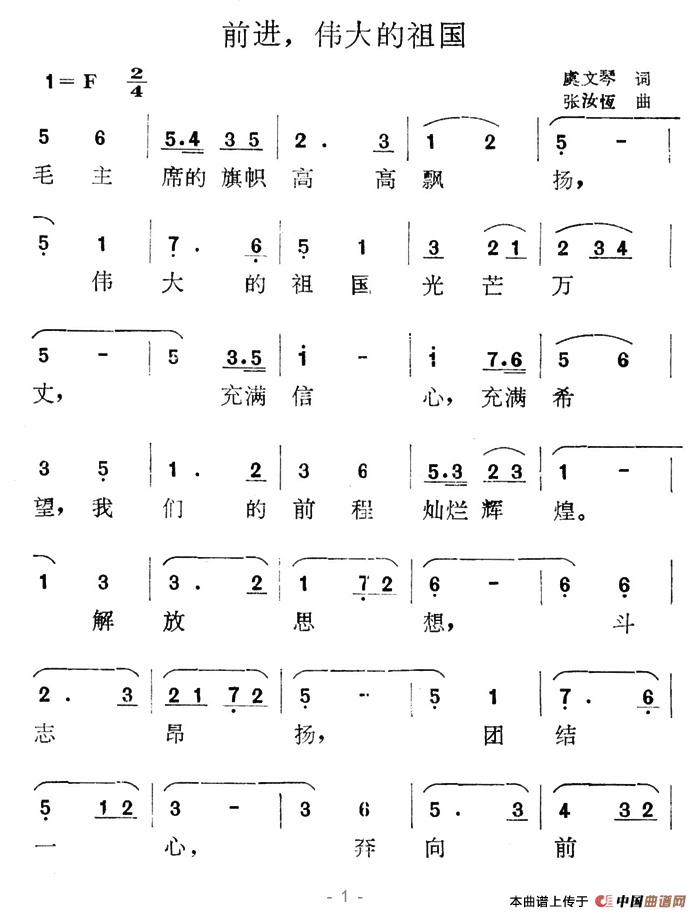 前进，伟大的祖国
1=F 2/4
虞文琴 词
张汝恆 曲
5 6 5.4 3 5 2 . 3 1 2 5 -
毛主席的旗帜高高飘扬，
5 1 7 . 6 5 1 3 2 1 2 3 4
伟大的祖国光芒万
5 - 5 3.5 i - i 7.6 5 6
丈，充满信心，充满希
3 5 1 . 2 3 6 5.3 2 3 1 -
望，我们的前程灿烂辉煌。
1 3 3 . 2 1 7 2 6 - 6 6
解放思想，斗
2 . 3 2 1 7 2 5 - 5 1 7 . 6
志昂扬，团结
5 1 2 3 - 3 6 5 . 3 4 3 2
一心，奔向前
- 1 -
本曲谱上传于 中国曲谱网